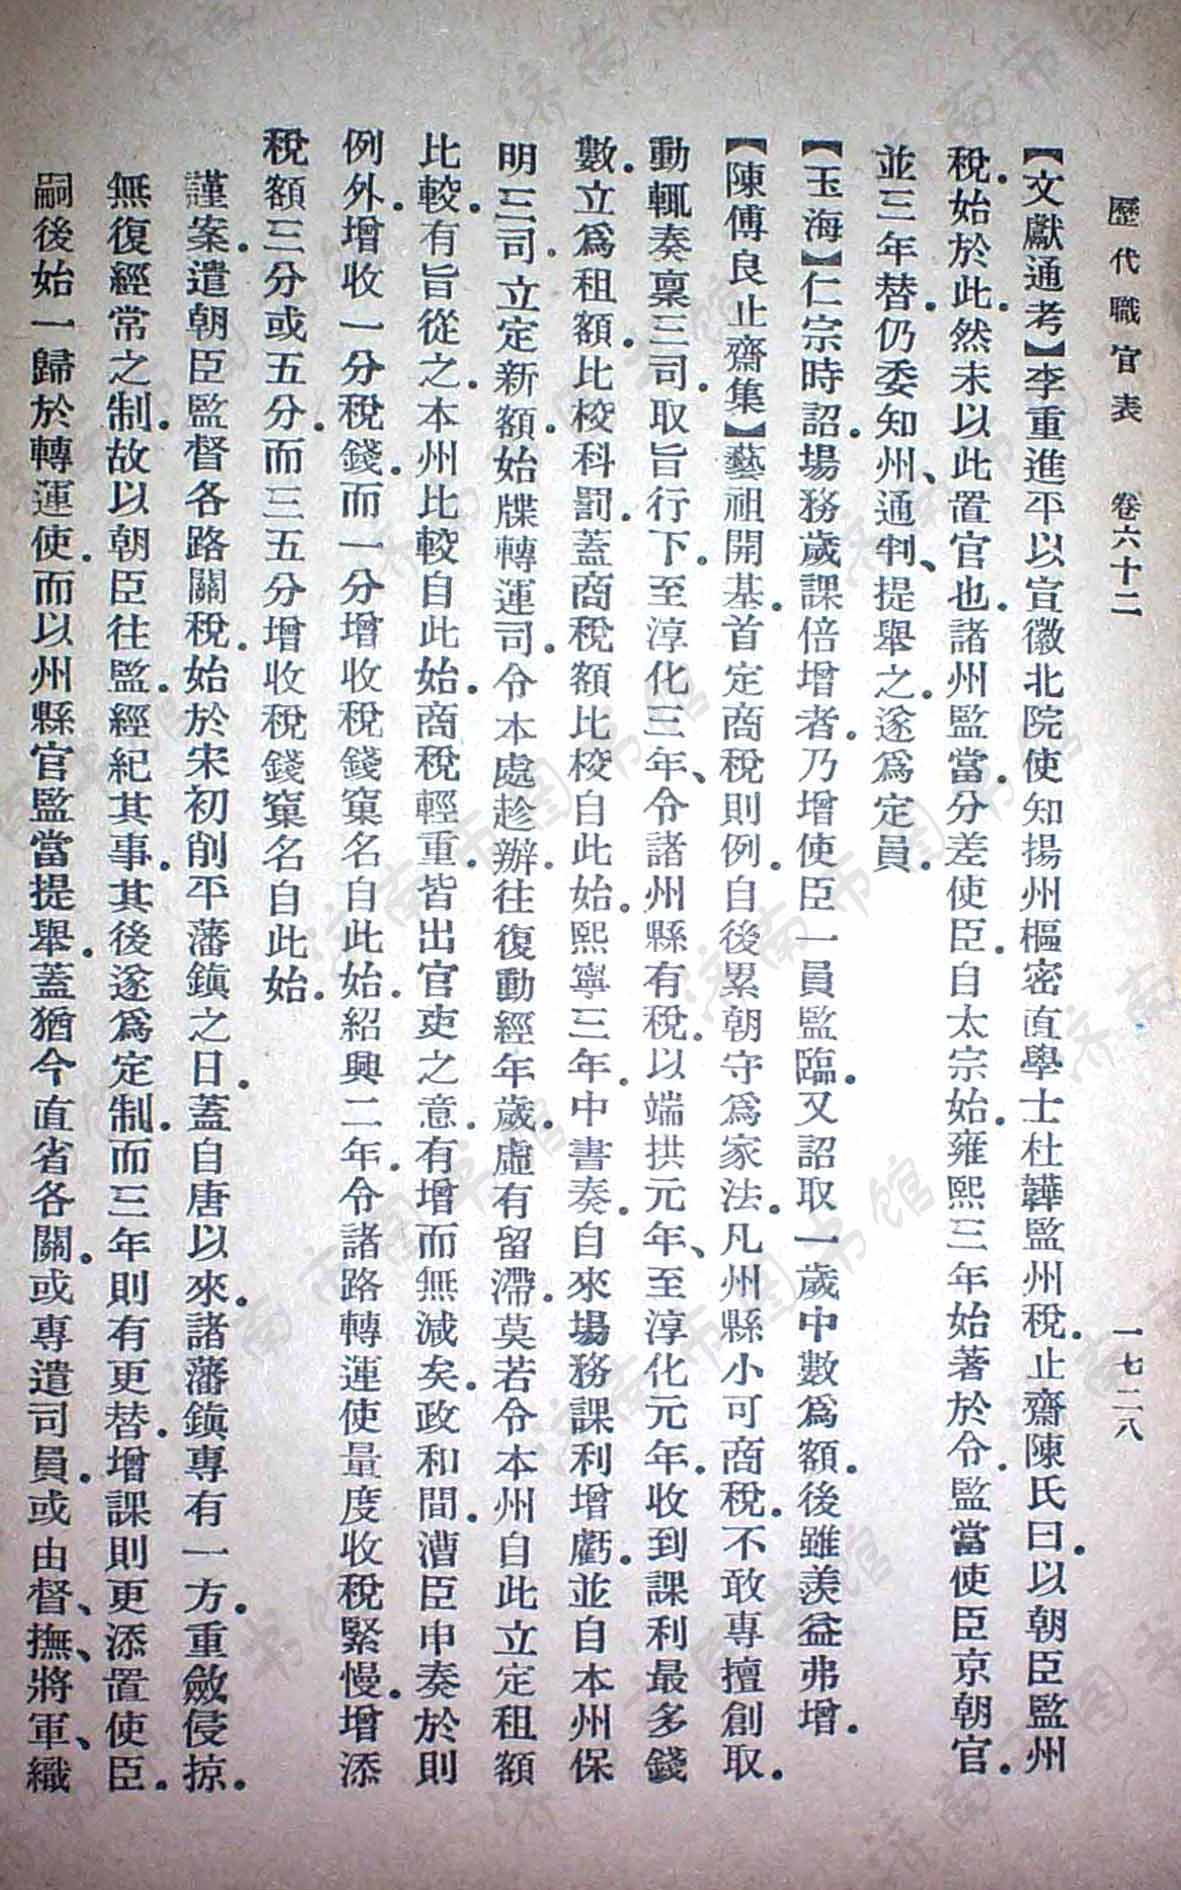 歷代職官表　卷六十二　一七二八
【文獻通考】李重進平以宣徽北院使知揚州樞密直學士杜韡監州稅。止齋陳氏曰。以朝臣監州
稅。始於此。然未以此置官也。諸州監當。分差使臣。自太宗始。雍熙三年始著於令。監當使臣京朝官。
並三年替。仍委知州、通判、提舉之。遂爲定員。
【玉海】仁宗時詔。場務歲課倍增者。乃增使臣一員監臨。又詔取一歲中數爲額。後雖羨益弗增。
【陳傅良止齋集】藝祖開基。首定商稅則例。自後累朝守爲家法。凡州縣小可商稅。不敢專擅創取。
動輒奏稟三司。取旨行下。至淳化三年、令諸州縣有稅。以端拱元年、至淳化元年。收到課利最多錢
數。立爲租額。比校科罰。蓋商稅額比校自此始。熙寧三年。中書奏。自來場務課利增虧。並自本州保
明三司。立定新額。始牒轉運司。令本處趁辦。往復動經年歲。虛有留滯。莫若令本州自此立定租額
比較。有旨從之。本州比較自此始。商稅輕重。皆出官吏之意。有增而無減矣。政和間。漕臣申奏於則
例外。增收一分稅錢。而一分增收稅錢窠名自此始。紹興二年。令諸路轉運使量度收稅緊慢。增添
稅額三分或五分。而三五分增收稅錢窠名自此始。
謹案。遣朝臣監督各路關稅。始於宋初削平藩鎮之日。蓋自唐以來。諸藩鎮專有一方。重斂侵掠。
無復經常之制。故以朝臣往監。經紀其事。其後遂爲定制。而三年則有更替。增課則更添置使臣。
嗣後始一歸於轉運使。而以州縣官監當提舉。蓋猶今直省各關。或專遣司員。或由督、撫、將軍、織